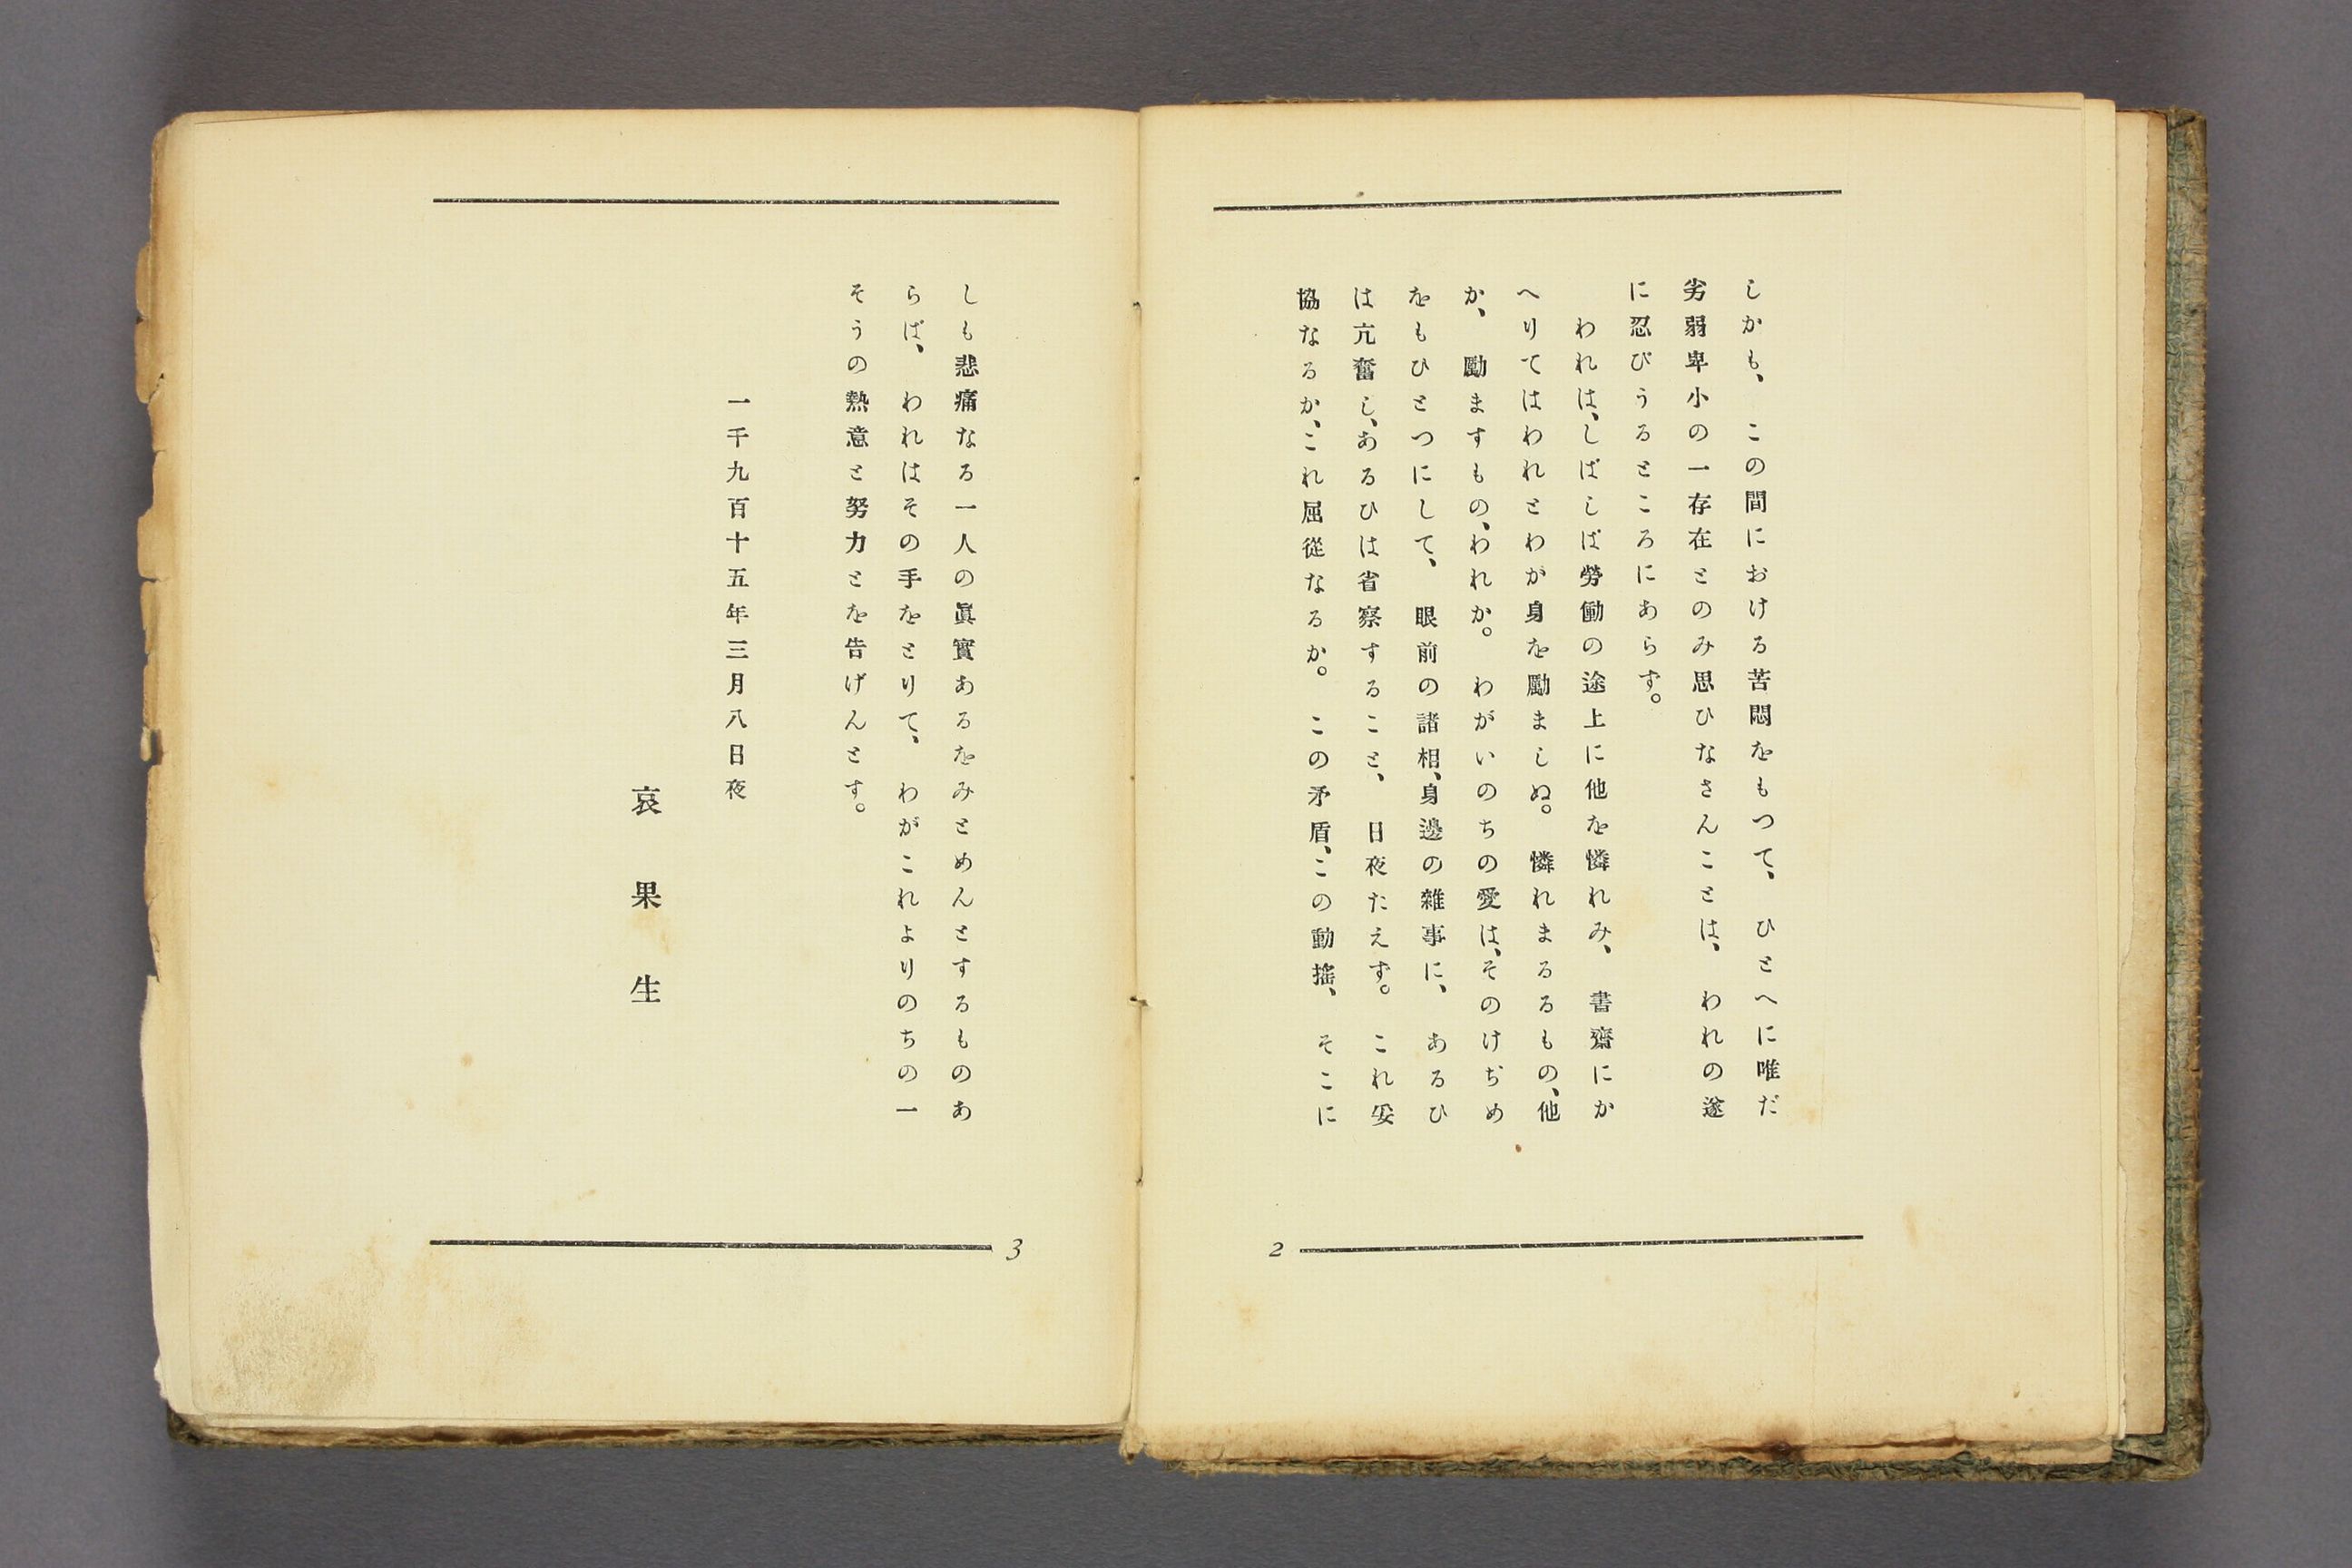 しかも、この間における苦悶をもつて、ひとへに唯だ
劣弱卑小の一存在とのみ思ひなさんことは、われの遂
に忍びうるところにあらず。
われは、しばしば勞働の途上に他を憐れみ、書齋にか
へりてはわれとわが身を勵ましぬ。憐れまるるもの、他
か、勵ますもの、われか。わがいのちの愛は、そのけぢめ
をもひとつにして、眼前の諸相、身邊の雜事に、あるひ
は亢奮し、あるひは省察すること、日夜たえず。これ妥
協なるか、これ屈從なるか。この矛盾、この動搖、そこに
2
しも悲痛なる一人の眞實あるをみとめんとするものあ
らば、われはその手をとりて、わがこれよりのちの一
そうの熱意と努力とを告げんとす。
一千九百十五年三月八日夜
哀果生
3